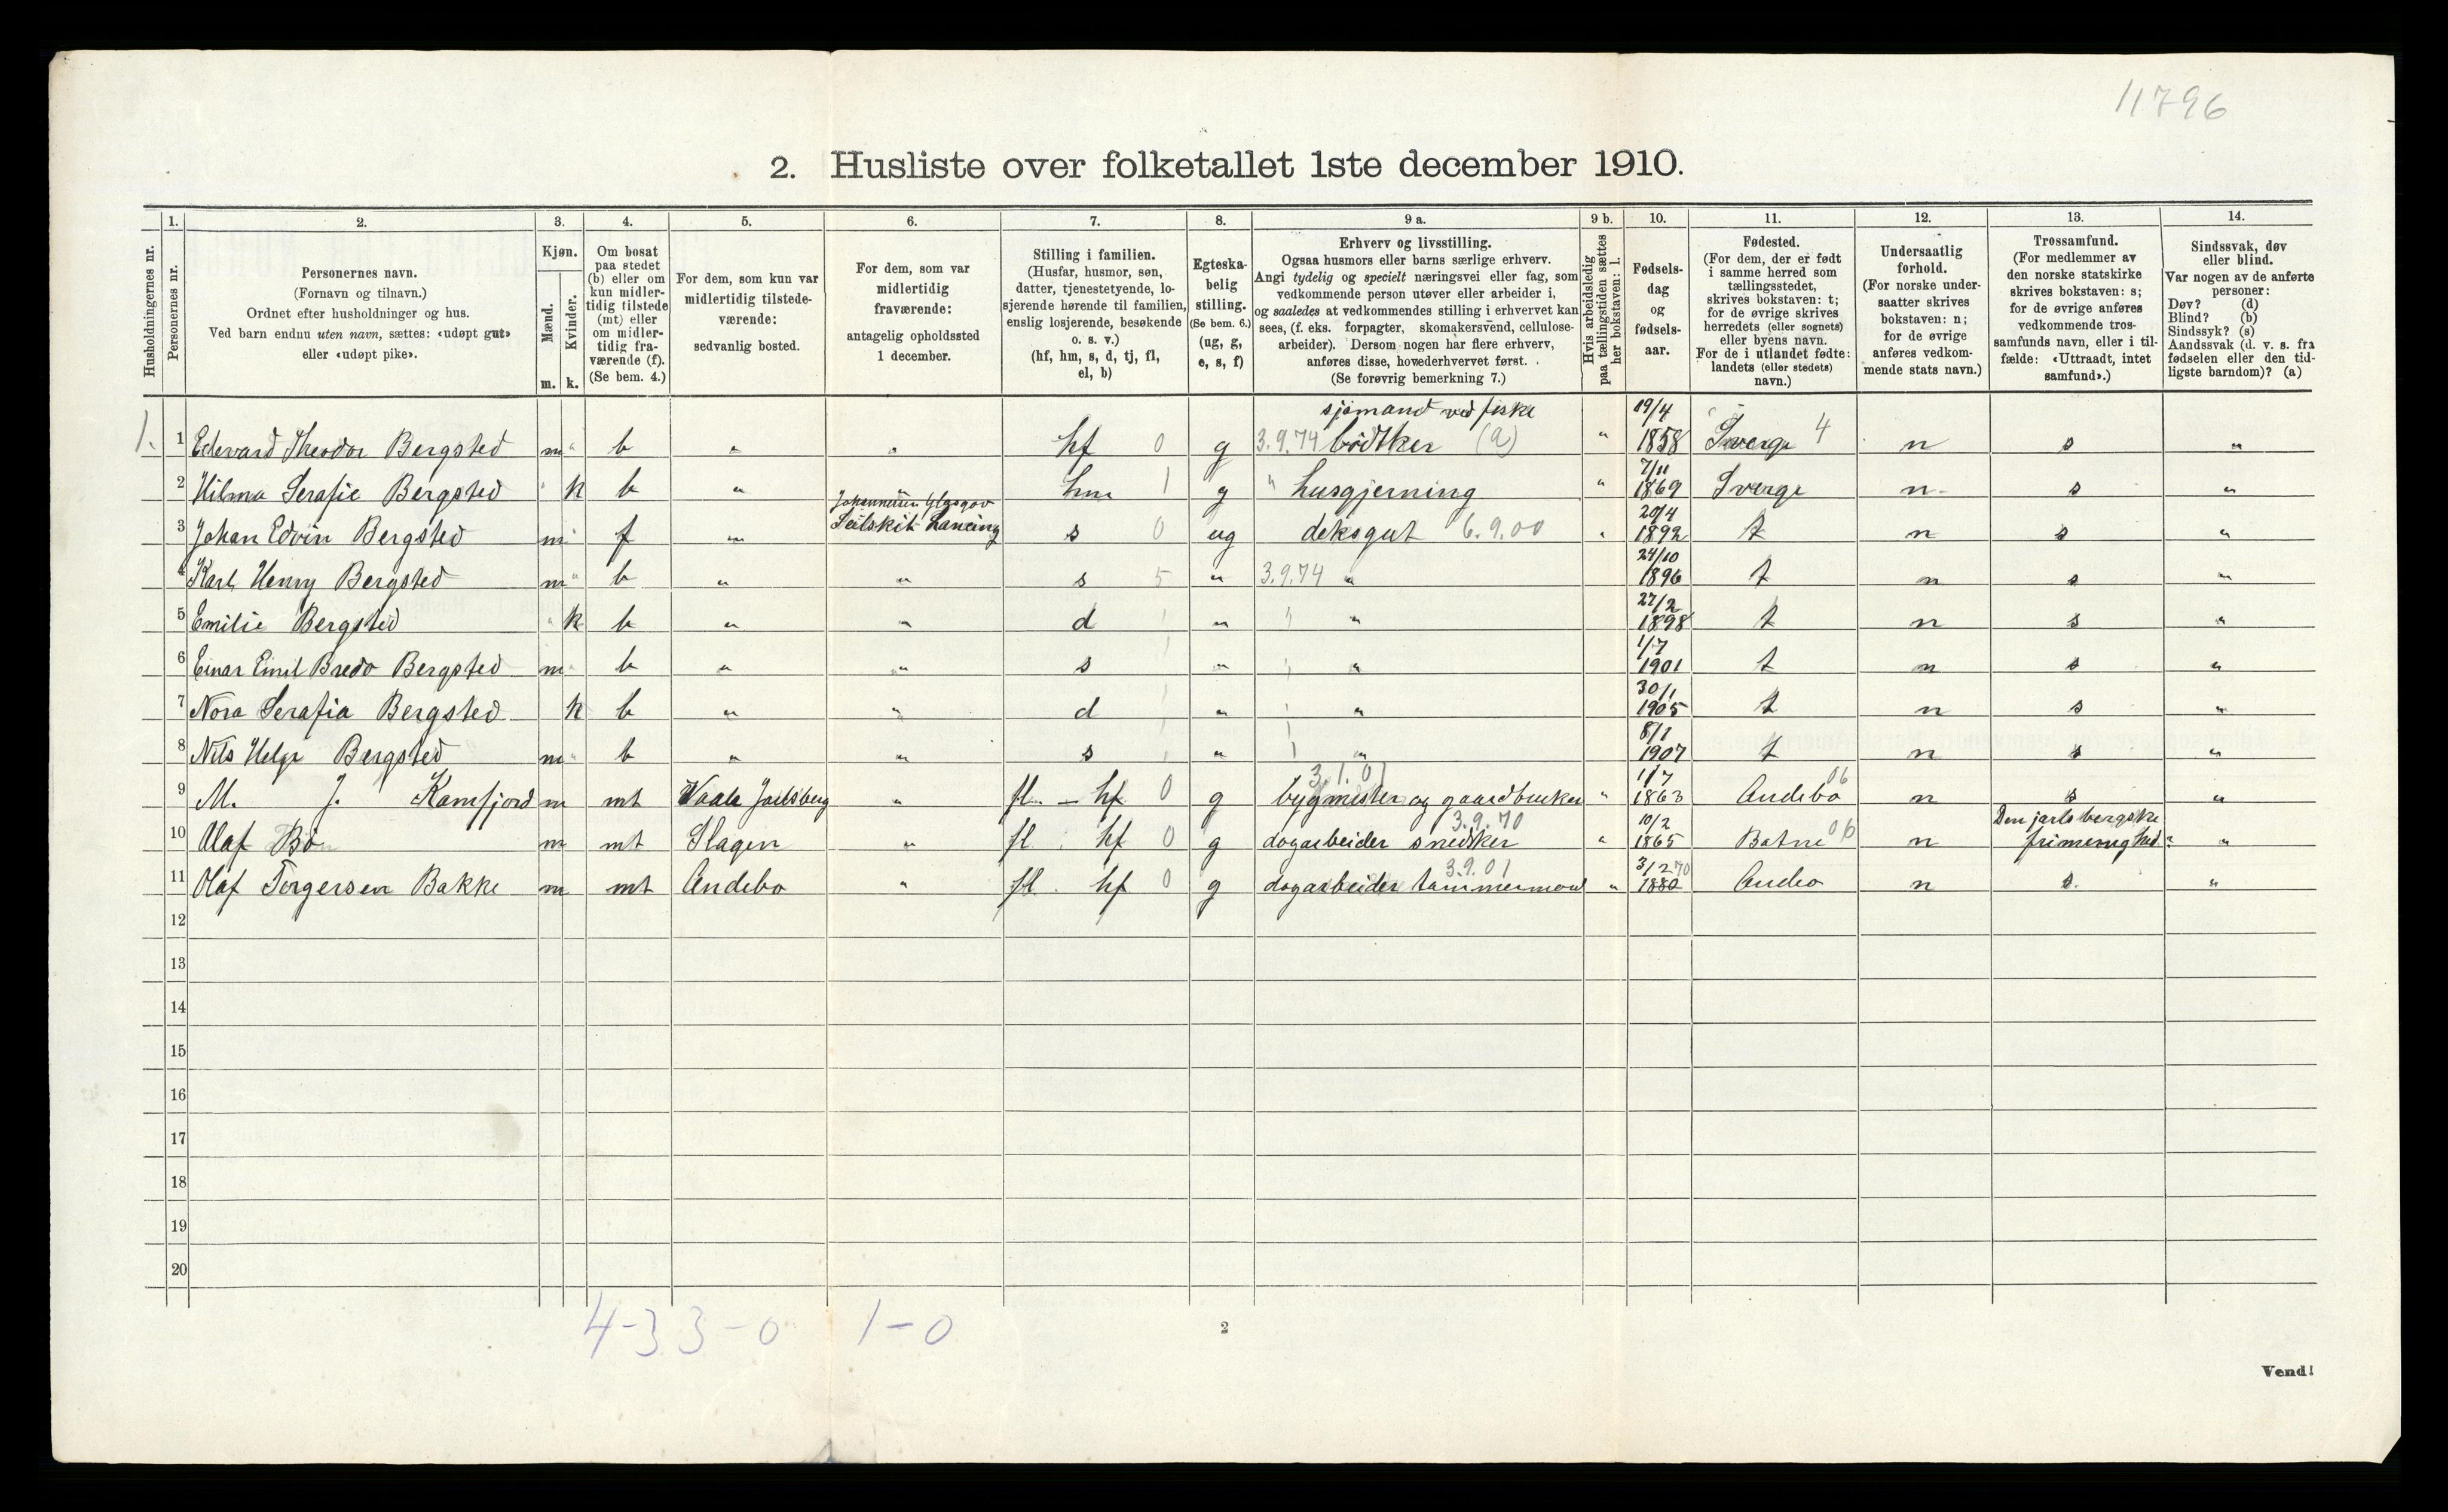 11796
2. Husliste over folketallet 1ste december 1910.
Husholdningernes nr.
1.
Personernes nr.
2.
Personernes navn.
(Fornavn og tilnavn.)
Ordnet efter husholdninger og hus.
Ved barn endnu uten navn, sættes: «udøpt gut»
eller «udøpt pike».
3.
Kjøn.
Mænd.
Kvinder.
m. k.
4.
Om bosat
paa stedet
(b) eller om
kun midler-
tidig tilstede
(mt) eller
om midler-
tidig fra-
værende (f).
(Se bem. 4.)
5.
For dem, som kun var
midlertidig tilstede-
værende:
sedvanlig bosted.
6.
For dem, som var
midlertidig
fraværende:
antagelig opholdssted
1 december.
7.
Stilling i familien.
(Husfar, husmor, søn,
datter, tjenestetyende, lo-
sjerende hørende til familien,
enslig losjerende, besøkende
o. s. v.)
(hf, hm, s, d, tj, fl,
el, b)
8.
Egteska-
belig
stilling.
(Se bem. 6.)
(ug, g,
e, s, f)
9 a.
Erhverv og livsstilling.
Ogsaa husmors eller barns særlige erhverv.
Angi tydelig og specielt næringsvei eller fag, som
vedkommende person utøver eller arbeider i,
og saaledes at vedkommendes stilling i erhvervet kan
sees, (f. eks. forpagter, skomakersvend, cellulose-
arbeider). Dersom nogen har flere erhverv,
anføres disse, hovederhvervet først.
(Se forøvrig bemerkning 7.)
9 b.
Hvis arbeidsledig
paa tællingstiden sættes
her bokstaven: l.
10.
Fødsels-
dag
og
fødsels-
aar.
11.
Fødested.
(For dem, der er født
i samme herred som
tællingsstedet,
skrives bokstaven: t;
for de øvrige skrives
herredets (eller sognets)
eller byens navn.
For de i utlandet fødte:
landets (eller stedets)
navn.)
12.
Undersaatlig
forhold.
(For norske under-
saatter skrives
bokstaven: n;
for de øvrige
anføres vedkom-
mende stats navn.)
13.
Trossamfund.
(For medlemmer av
den norske statskirke
skrives bokstaven: s;
for de øvrige anføres
vedkommende tros-
samfunds navn, eller i til-
fælde: «Uttraadt, intet
samfund».)
14.
Sindssvak, døv
eller blind.
Var nogen av de anførte
personer:
Døv? (d)
Blind? (b)
Sindssyk? (s)
Aandssvak (d. v. s. fra
fødselen eller den tid-
ligste barndom)? (a)
sjømand ved fiske 19/4
1. 1 Edevard Theodor Bergsted m " b " " hf 0 g 3.9.74 bødtker (a) " 1858 Sverge 4 n s "
7/11
2 Hilma Serafie Bergsted " k b " " hm 1 g " husgjerning " 1869 Sverge n s "
20/4
3 Johan Edvin Bergsted m " f " Seilskib Lancing s 0 ug deksgut 6.9.00 " 1892 t n s "
24/10
4 Karl Henry Bergsted m " b " " s 5 " 3.9.74 " 1896 t n s "
27/2
5 Emilie Bergsted " k b " " d " " 1898 t n s "
1/7
6 Einar Emil Bredo Bergsted m " b " " s " " 1901 t n s "
30/1
7 Nora Serafia Bergsted k b " " d " " 1905 t n s "
8/1
8 Nils Helge Bergsted m " b " " s " " 1907 t n s "
3.1.01 1/7 06
9 M. J. Kamfjord m mt Vaale Jarlsberg " fl - hf 0 g bygmester og gaardbruker " 1863 Andebo n s "
3.9.70 10/2 06 Den jarlsbergske
10 Olaf Bø m mt Slagen " fl hf 0 g dagarbeider snedker " 1865 Botne n frimenighed "
3.9.01 3/2 70
11 Olaf Torgersen Bakke m mt Andebo " fl hf 0 g dagarbeider tømmermand " 1880 n s. "
12
13
14
15
16
17
18
19
20
4-3 3-0 1-0
2
Vend!